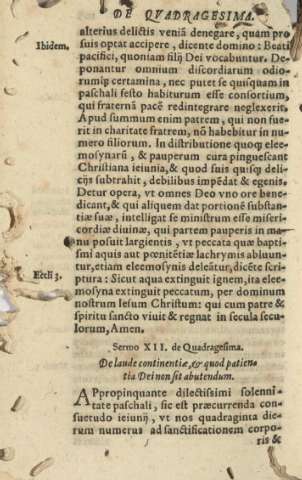 DE QVADRAGESIMA.
alterius delictis veniā denegare, quam pro
Ibidem. suis optat accipere, dicente domino: Beati
pacifici, quoniam filij Dei vocabuntur. De
ponantur omnium discordiarum odio-
rumq́; certamina, nec putet se quisquam in
paschali festo habiturum esse consortium,
qui fraternā pacē redintegrare neglexerit.
Apud summum enim patrem, qui non fue-
rit in charitate fratrem, nō habebitur in nu
mero filiorum. In distributione quoq́; elee-
mosynarū, & pauperum cura pinguescant
Christiana ieiunia, & quod suis quisq́; deli-
cijs subtrahit, debilibus impēdat & egenis.
Detur opera, vt omnes Deo vno ore bene-
dicant, & qui aliquem dat portionē substan-
tiæ suæ, intelligat se ministrum esse miseri-
cordiæ diuinæ, qui partem pauperis in ma-
nu posuit largientis, vt peccata quæ bapti-
smi aquis aut pœnitētiæ lachrymis abluun-
tur, etiam eleemosynis deleātur, dicēte scri-
Eccli 3. ptura: Sicut aqua extinguit ignem, ita elee
mosyna extinguit peccatum, per dominum
nostrum Iesum Christum: qui cum patre &
spiritu sancto viuit & regnat in secula secu-
lorum, Amen.
Sermo XII. de Quadragesima.
De laude continentiæ, & quod patien-
tia Dei non sit abutendum.
APpropinquante dilectissimi solenni-
tate paschali, sic est præcurrenda con-
suetudo ieiunij, vt nos quadraginta die-
rum numerus ad sanctificationem corpo-
ris &